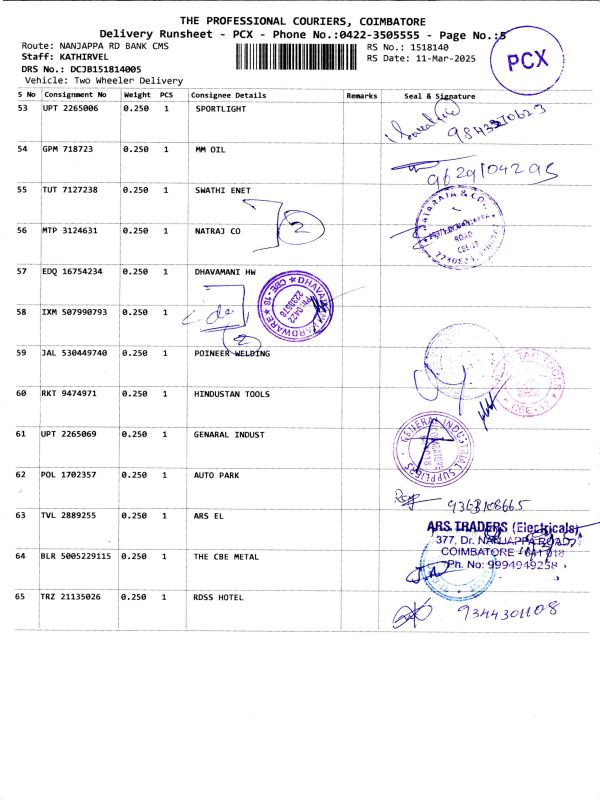 THE PROFESSIONAL COURIERS, COIMBATORE
Delivery Runsheet - PCX - Phone No.:0422-3505555 - Page No.:5
Route: NANJAPPA RD BANK CMS
RS No.: 1518140
Staff: KATHIRVEL
RS Date: 11-Mar-2025
DRS No.: DCJB151814005
Vehicle: Two Wheeler Delivery
PCX
S No Consignment No Weight PCS Consignee Details Remarks Seal & Signature
53 UPT 2265006 0.250 1 SPORTLIGHT
54 GPM 718723 0.250 1 MM OIL
9629104295
55 TUT 7127238 0.250 1 SWATHI ENET
56 MTP 3124631 0.250 1 NATRAJ CO
2
57 EDQ 16754234 0.250 1 DHAVAMANI HW
58 IXM 507990793 0.250 1
2
59 JAL 530449740 0.250 1 POINEER WELDING
60 RKT 9474971 0.250 1 HINDUSTAN TOOLS
61 UPT 2265069 0.250 1 GENARAL INDUST
GENERAL INDUSTRIAL SUPPLIERS
62 POL 1702357 0.250 1 AUTO PARK
63 TVL 2889255 0.250 1 ARS EL
ARS TRADERS (Electricals)
377, Dr. NANJAPPA ROAD
COIMBATORE - 641 018
Ph. No: 9994949258
64 BLR 5005229115 0.250 1 THE CBE METAL
65 TRZ 21135026 0.250 1 RDSS HOTEL
9344301108